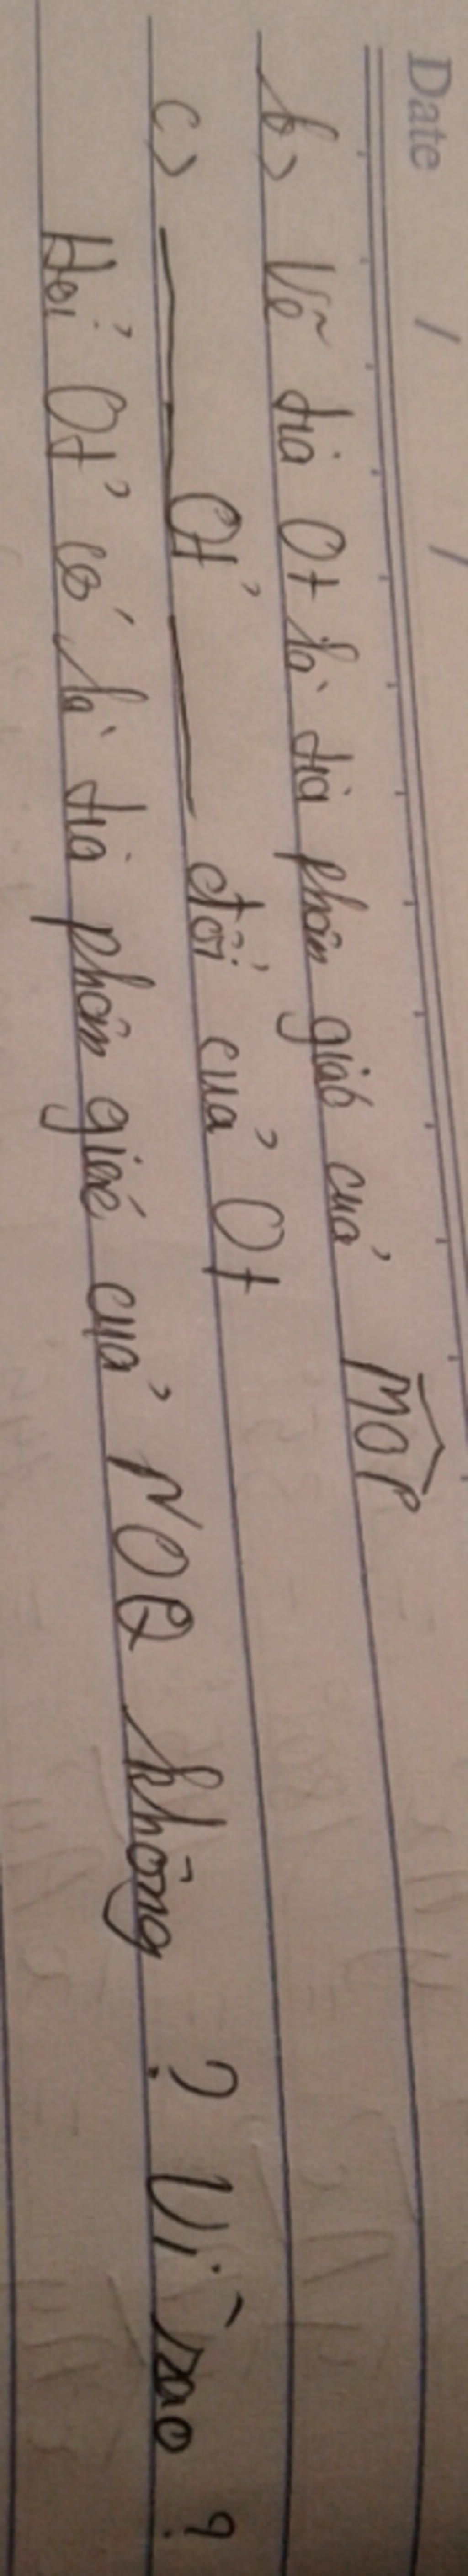 Date / /
b) Vẽ tia Ot là tia phân giác của MOP
c) ——— Ot' ——— đối của Ot
Hỏi Ot' có là tia phân giác của NOQ không ? Vì sao ?